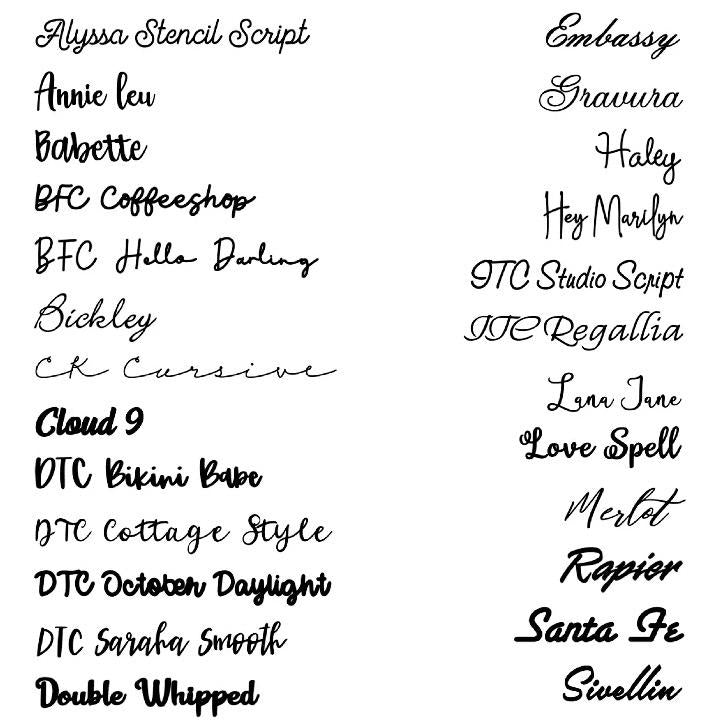 Alyssa Stencil Script
Annie leu
Babette
BFC Coffeeshop
BFC Hello Darling
Bickley
CK Cursive
Cloud 9
DTC Bikini Babe
DTC Cottage Style
DTC October Daylight
DTC Saraha Smooth
Double Whipped
Embassy
Gravura
Haley
Hey Marilyn
ITC Studio Script
ITC Regallia
Lana Jane
Love Spell
Merlot
Rapier
Santa Fe
Sivellin